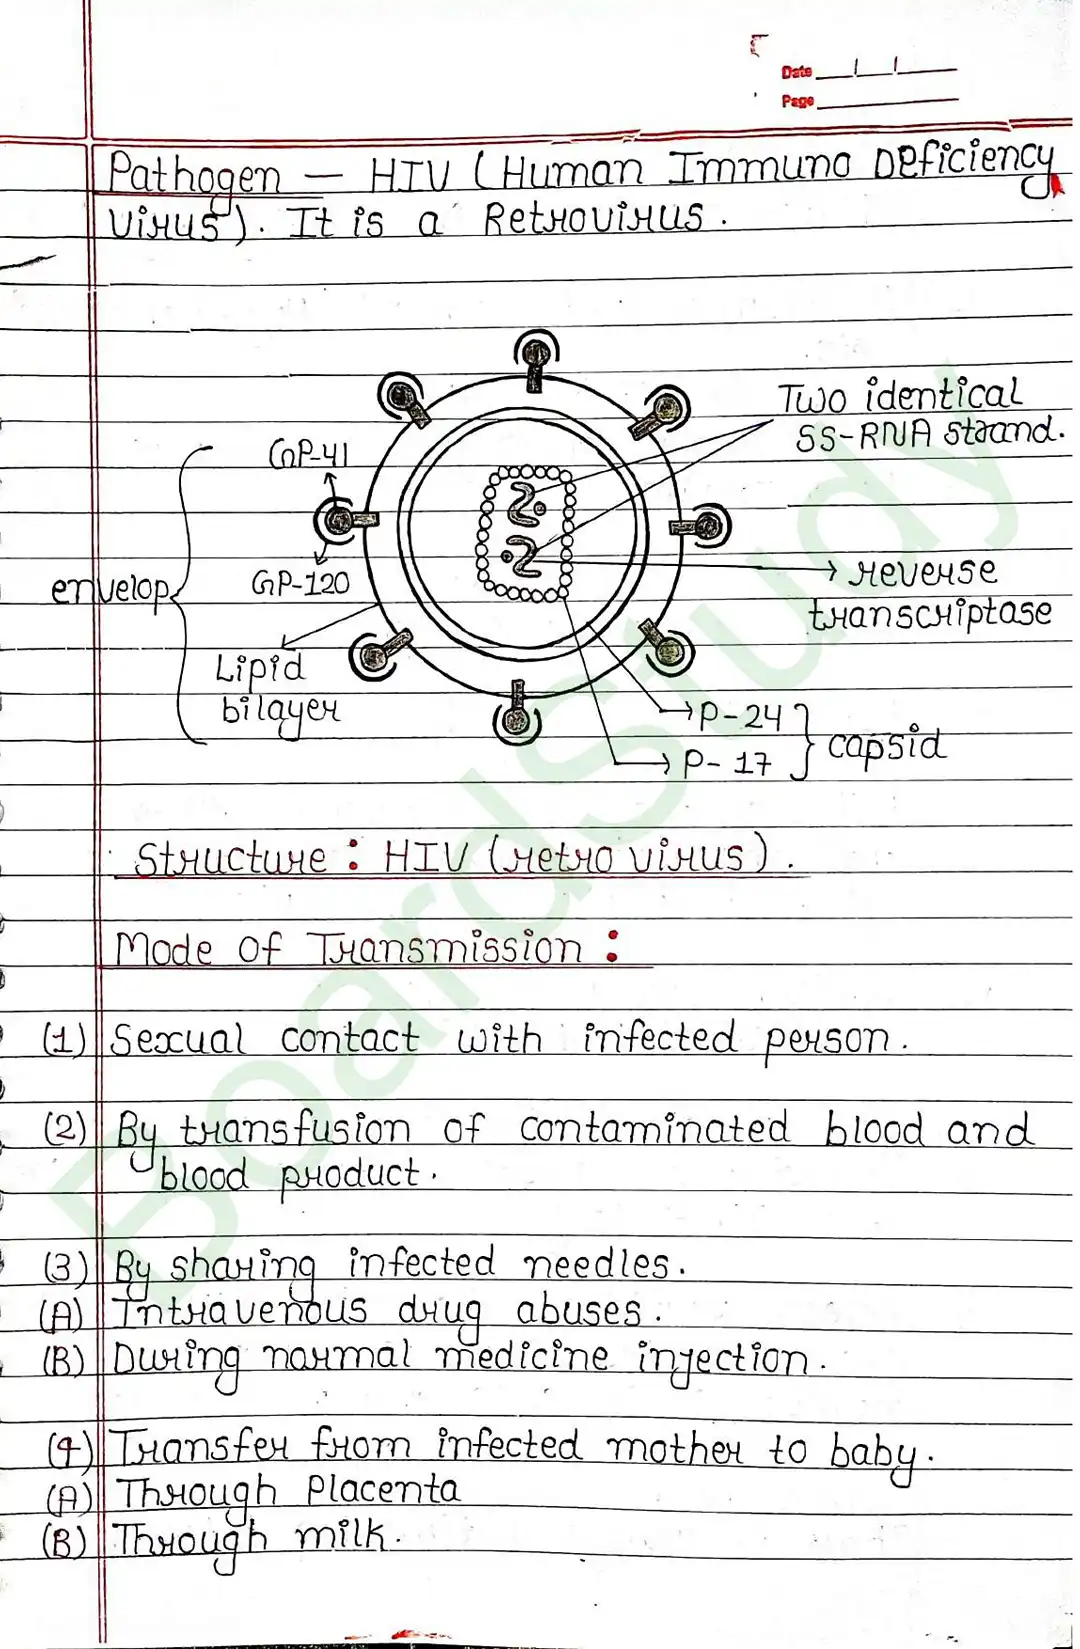 Date
Page
Pathogen — HIV (Human Immuno Deficiency
Virus). It is a Retrovirus.
Two identical
SS-RNA strand.
GP-41
GP-120
envelop
reverse
transcriptase
Lipid
bilayer
P-24
P-17
capsid
Structure : HIV (retro virus).
Mode of Transmission :
(1) Sexual contact with infected person.
(2) By transfusion of contaminated blood and
blood product.
(3) By sharing infected needles.
(A) Intravenous drug abuses.
(B) During normal medicine injection.
(4) Transfer from infected mother to baby.
(A) Through Placenta
(B) Through milk.
BoardStudy